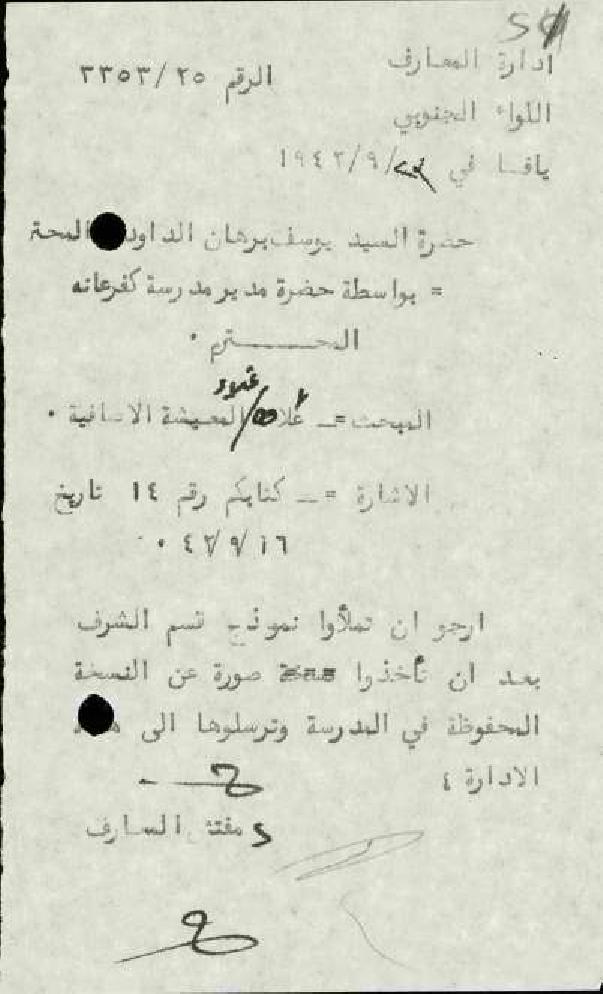 ادارة المعارف
الرقم ٣٣٥٣/٢٥
اللواء الجنوبي
يافا في /٩/١٩٤٢
حضرة السيد يوسف برهان الداود المحتر
= بواسطة حضرة مدير مدرسة كفرعانه
المحـــــترم ٠
غلاء
المبحث =ــ علا / المعيشة الاضافية ٠
الاشارة =ــ كتابكم رقم ١٤ تاريخ
٤٢/٩/١٦ ٠
ارجو ان تملأوا نموذج قسم الشرف
بعد ان تأخذوا صورة عن النسخة
المحفوظة في المدرسة وترسلوها الى
الادارة ؛
مفتش المعارف